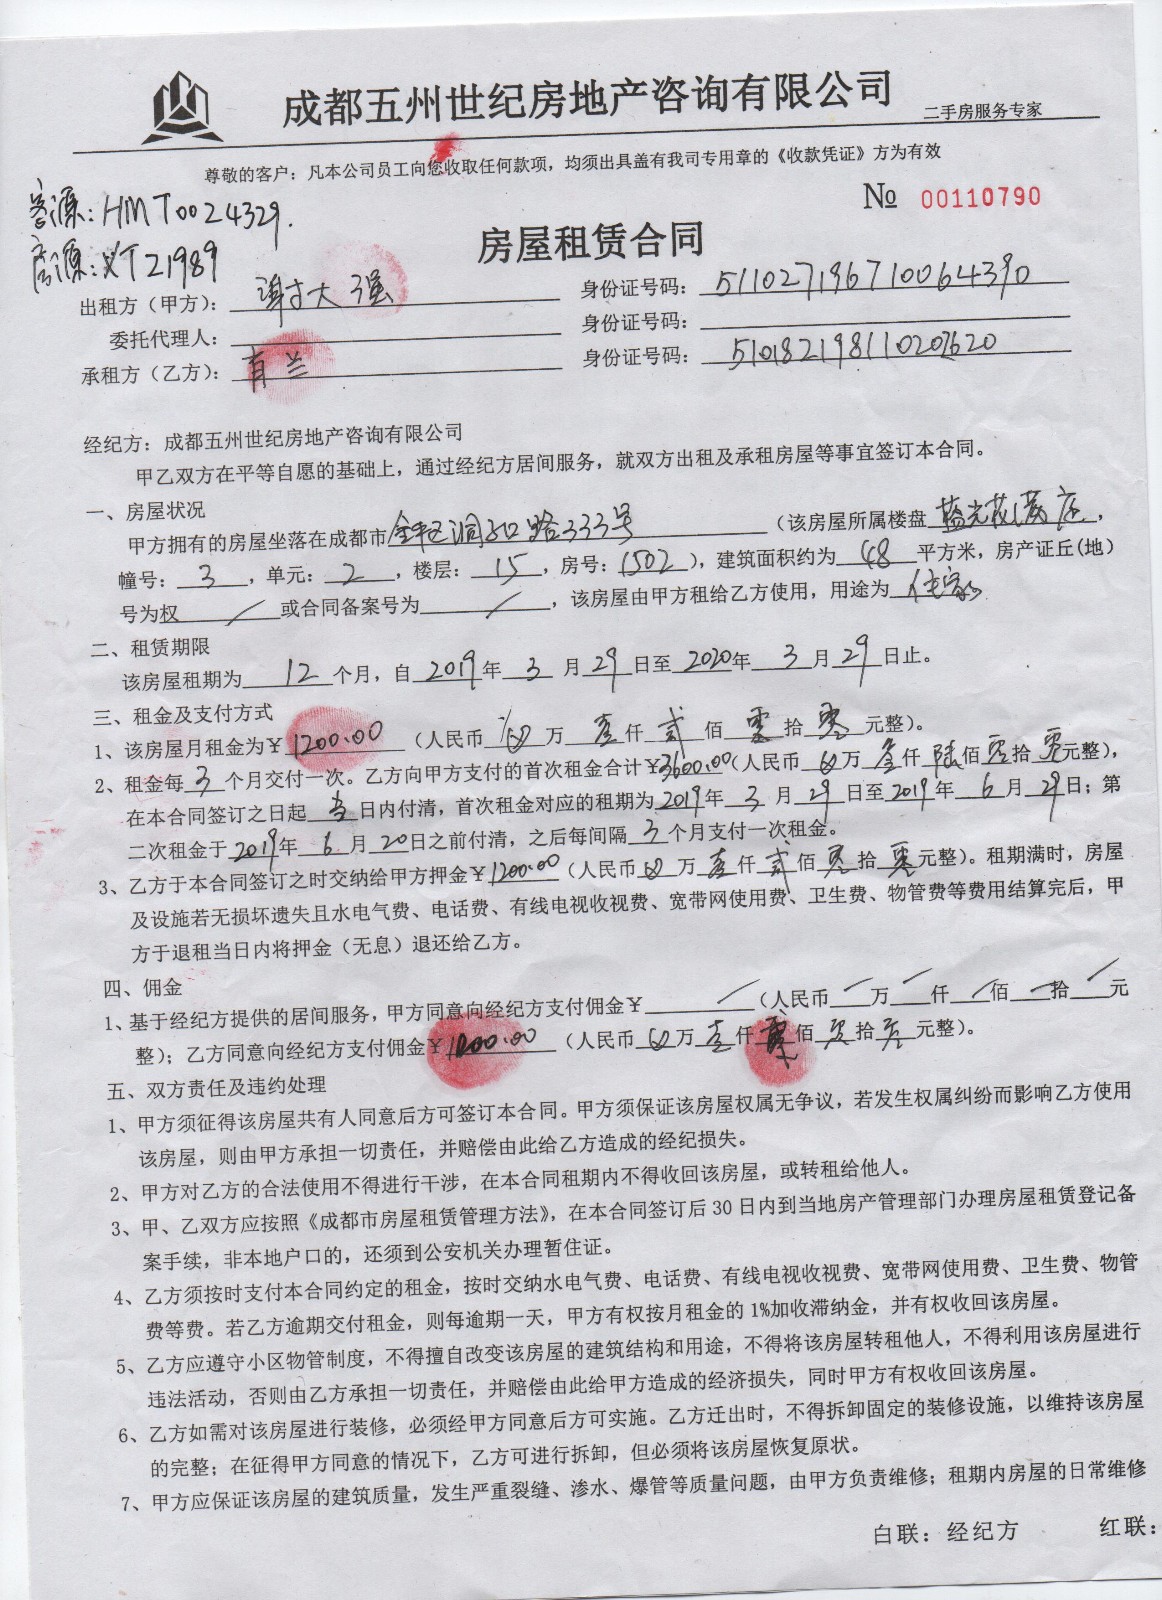 成都五州世纪房地产咨询有限公司 二手房服务专家
尊敬的客户：凡本公司员工向您收取任何款项，均须出具盖有我司专用章的《收款凭证》方为有效
客源：HMT0024329.
№ 00110790
房源：XT21989
房屋租赁合同
出租方（甲方）：谢大强 身份证号码：511027196710064390
委托代理人： 身份证号码：
承租方（乙方）：肖兰 身份证号码：510182198110207620
经纪方：成都五州世纪房地产咨询有限公司
甲乙双方在平等自愿的基础上，通过经纪方居间服务，就双方出租及承租房屋等事宜签订本合同。
一、房屋状况
甲方拥有的房屋坐落在成都市金牛区洞子口路333号（该房屋所属楼盘蓝光花满庭，
幢号：3，单元：2，楼层：15，房号：1502），建筑面积约为48平方米，房产证丘(地)
号为权／或合同备案号为／，该房屋由甲方租给乙方使用，用途为住家。
二、租赁期限
该房屋租期为12个月，自2019年3月29日至2020年3月29日止。
三、租金及支付方式
1、该房屋月租金为￥1200.00（人民币万壹仟贰佰零拾零元整）。
2、租金每3个月交付一次。乙方向甲方支付的首次租金合计￥3600.00（人民币万叁仟陆佰零拾零元整），
在本合同签订之日起当日内付清，首次租金对应的租期为2019年3月29日至2019年6月29日；第
二次租金于2019年6月20日之前付清，之后每间隔3个月支付一次租金。
3、乙方于本合同签订之时交纳给甲方押金￥1200.00（人民币万壹仟贰佰零拾零元整）。租期满时，房屋
及设施若无损坏遗失且水电气费、电话费、有线电视收视费、宽带网使用费、卫生费、物管费等费用结算完后，甲
方于退租当日内将押金（无息）退还给乙方。
四、佣金
1、基于经纪方提供的居间服务，甲方同意向经纪方支付佣金￥／（人民币／万／仟／佰／拾／元
整）；乙方同意向经纪方支付佣金￥1000.00（人民币万壹仟佰零拾零元整）。
五、双方责任及违约处理
1、甲方须征得该房屋共有人同意后方可签订本合同。甲方须保证该房屋权属无争议，若发生权属纠纷而影响乙方使用
该房屋，则由甲方承担一切责任，并赔偿由此给乙方造成的经纪损失。
2、甲方对乙方的合法使用不得进行干涉，在本合同租期内不得收回该房屋，或转租给他人。
3、甲、乙双方应按照《成都市房屋租赁管理方法》，在本合同签订后30日内到当地房产管理部门办理房屋租赁登记备
案手续，非本地户口的，还须到公安机关办理暂住证。
4、乙方须按时支付本合同约定的租金，按时交纳水电气费、电话费、有线电视收视费、宽带网使用费、卫生费、物管
费等费。若乙方逾期交付租金，则每逾期一天，甲方有权按月租金的1%加收滞纳金，并有权收回该房屋。
5、乙方应遵守小区物管制度，不得擅自改变该房屋的建筑结构和用途，不得将该房屋转租他人，不得利用该房屋进行
违法活动，否则由乙方承担一切责任，并赔偿由此给甲方造成的经济损失，同时甲方有权收回该房屋。
6、乙方如需对该房屋进行装修，必须经甲方同意后方可实施。乙方迁出时，不得拆卸固定的装修设施，以维持该房屋
的完整；在征得甲方同意的情况下，乙方可进行拆卸，但必须将该房屋恢复原状。
7、甲方应保证该房屋的建筑质量，发生严重裂缝、渗水、爆管等质量问题，由甲方负责维修；租期内房屋的日常维修
白联：经纪方 红联：